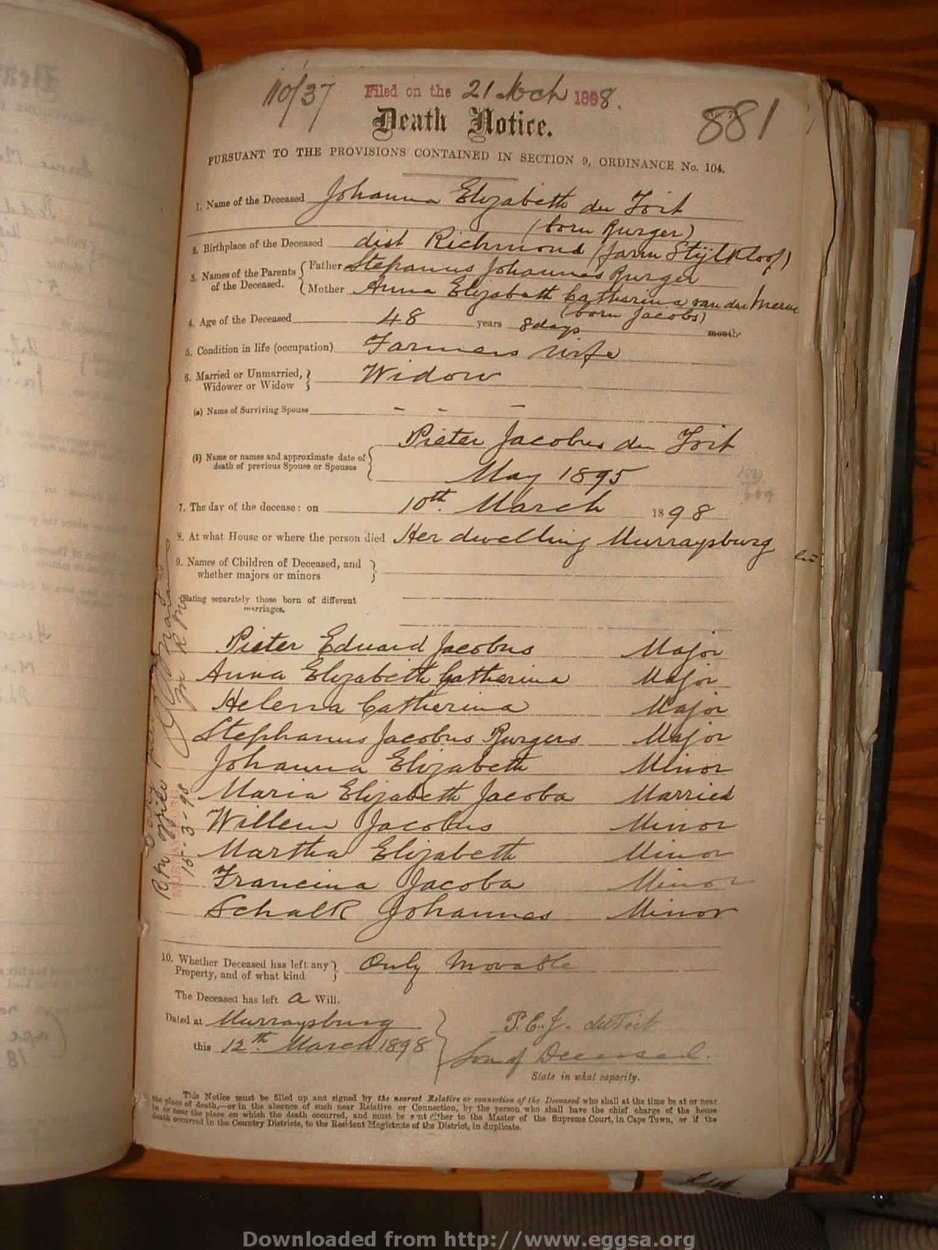 110/37 Filed on the 21 Mch 1898.
881
Death Notice.
PURSUANT TO THE PROVISIONS CONTAINED IN SECTION 9, ORDINANCE No. 104.
1. Name of the Deceased Johanna Elizabeth du Toit
(born Burger)
2. Birthplace of the Deceased dist Richmond (farm Stijlkloof)
3. Names of the Parents of the Deceased. { Father Stepanus Johannes Burger
Mother Anna Elizabeth Catharina van der Merwe
(born Jacobs)
4. Age of the Deceased 48 years 8 days months
5. Condition in life (occupation) Farmers Wife
6. Married or Unmarried, Widower or Widow } Widow
(a) Name of Surviving Spouse - - -
(b) Name or names and approximate date of death of previous Spouse or Spouses { Pieter Jacobus du Toit
May 1895
7. The day of the decease: on 10th March 1898
8. At what House or where the person died Her dwelling Murraysburg
9. Names of Children of Deceased, and whether majors or minors }
(Stating separately those born of different marriages.
Pieter Eduard Jacobus Major
Anna Elizabeth Catherina Major
Helena Catherina Major
Stephanus Jacobus Burgers Major
Johanna Elizabeth Minor
Maria Elizabeth Jacoba Married
Willem Jacobus Minor
Martha Elizabeth Minor
Francina Jacoba Minor
Schalk Johannes Minor
15-3-98
10. Whether Deceased has left any Property, and of what kind } Only Movable
The Deceased has left a Will.
Dated at Murraysburg
this 12th March 1898
P.E.J. du Toit
Son of Deceased.
State in what capacity.
This Notice must be filled up and signed by the nearest Relative or connection of the Deceased who shall at the time be at or near
the place of death,—or in the absence of such near Relative or Connection, by the person who shall have the chief charge of the house
in or near the place on which the death occurred, and must be sent either to the Master of the Supreme Court, in Cape Town, or if the
death occurred in the Country Districts, to the Resident Magistrate of the District, in duplicate.
Downloaded from http://www.eggsa.org